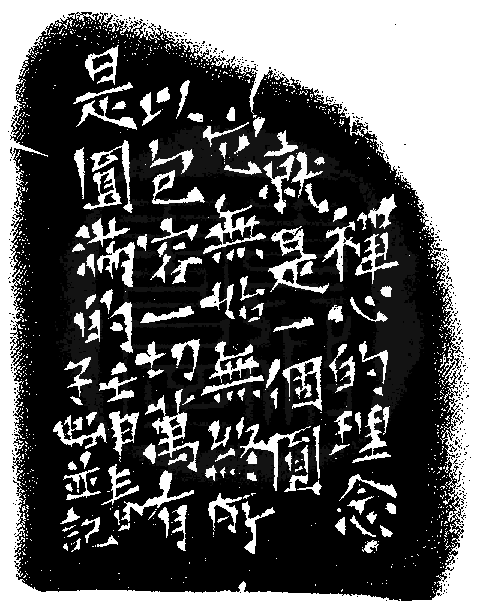 禪心的理念
就是一個圓
它無始無終所
以包容一切萬有
是圓滿的
壬申
子 並記